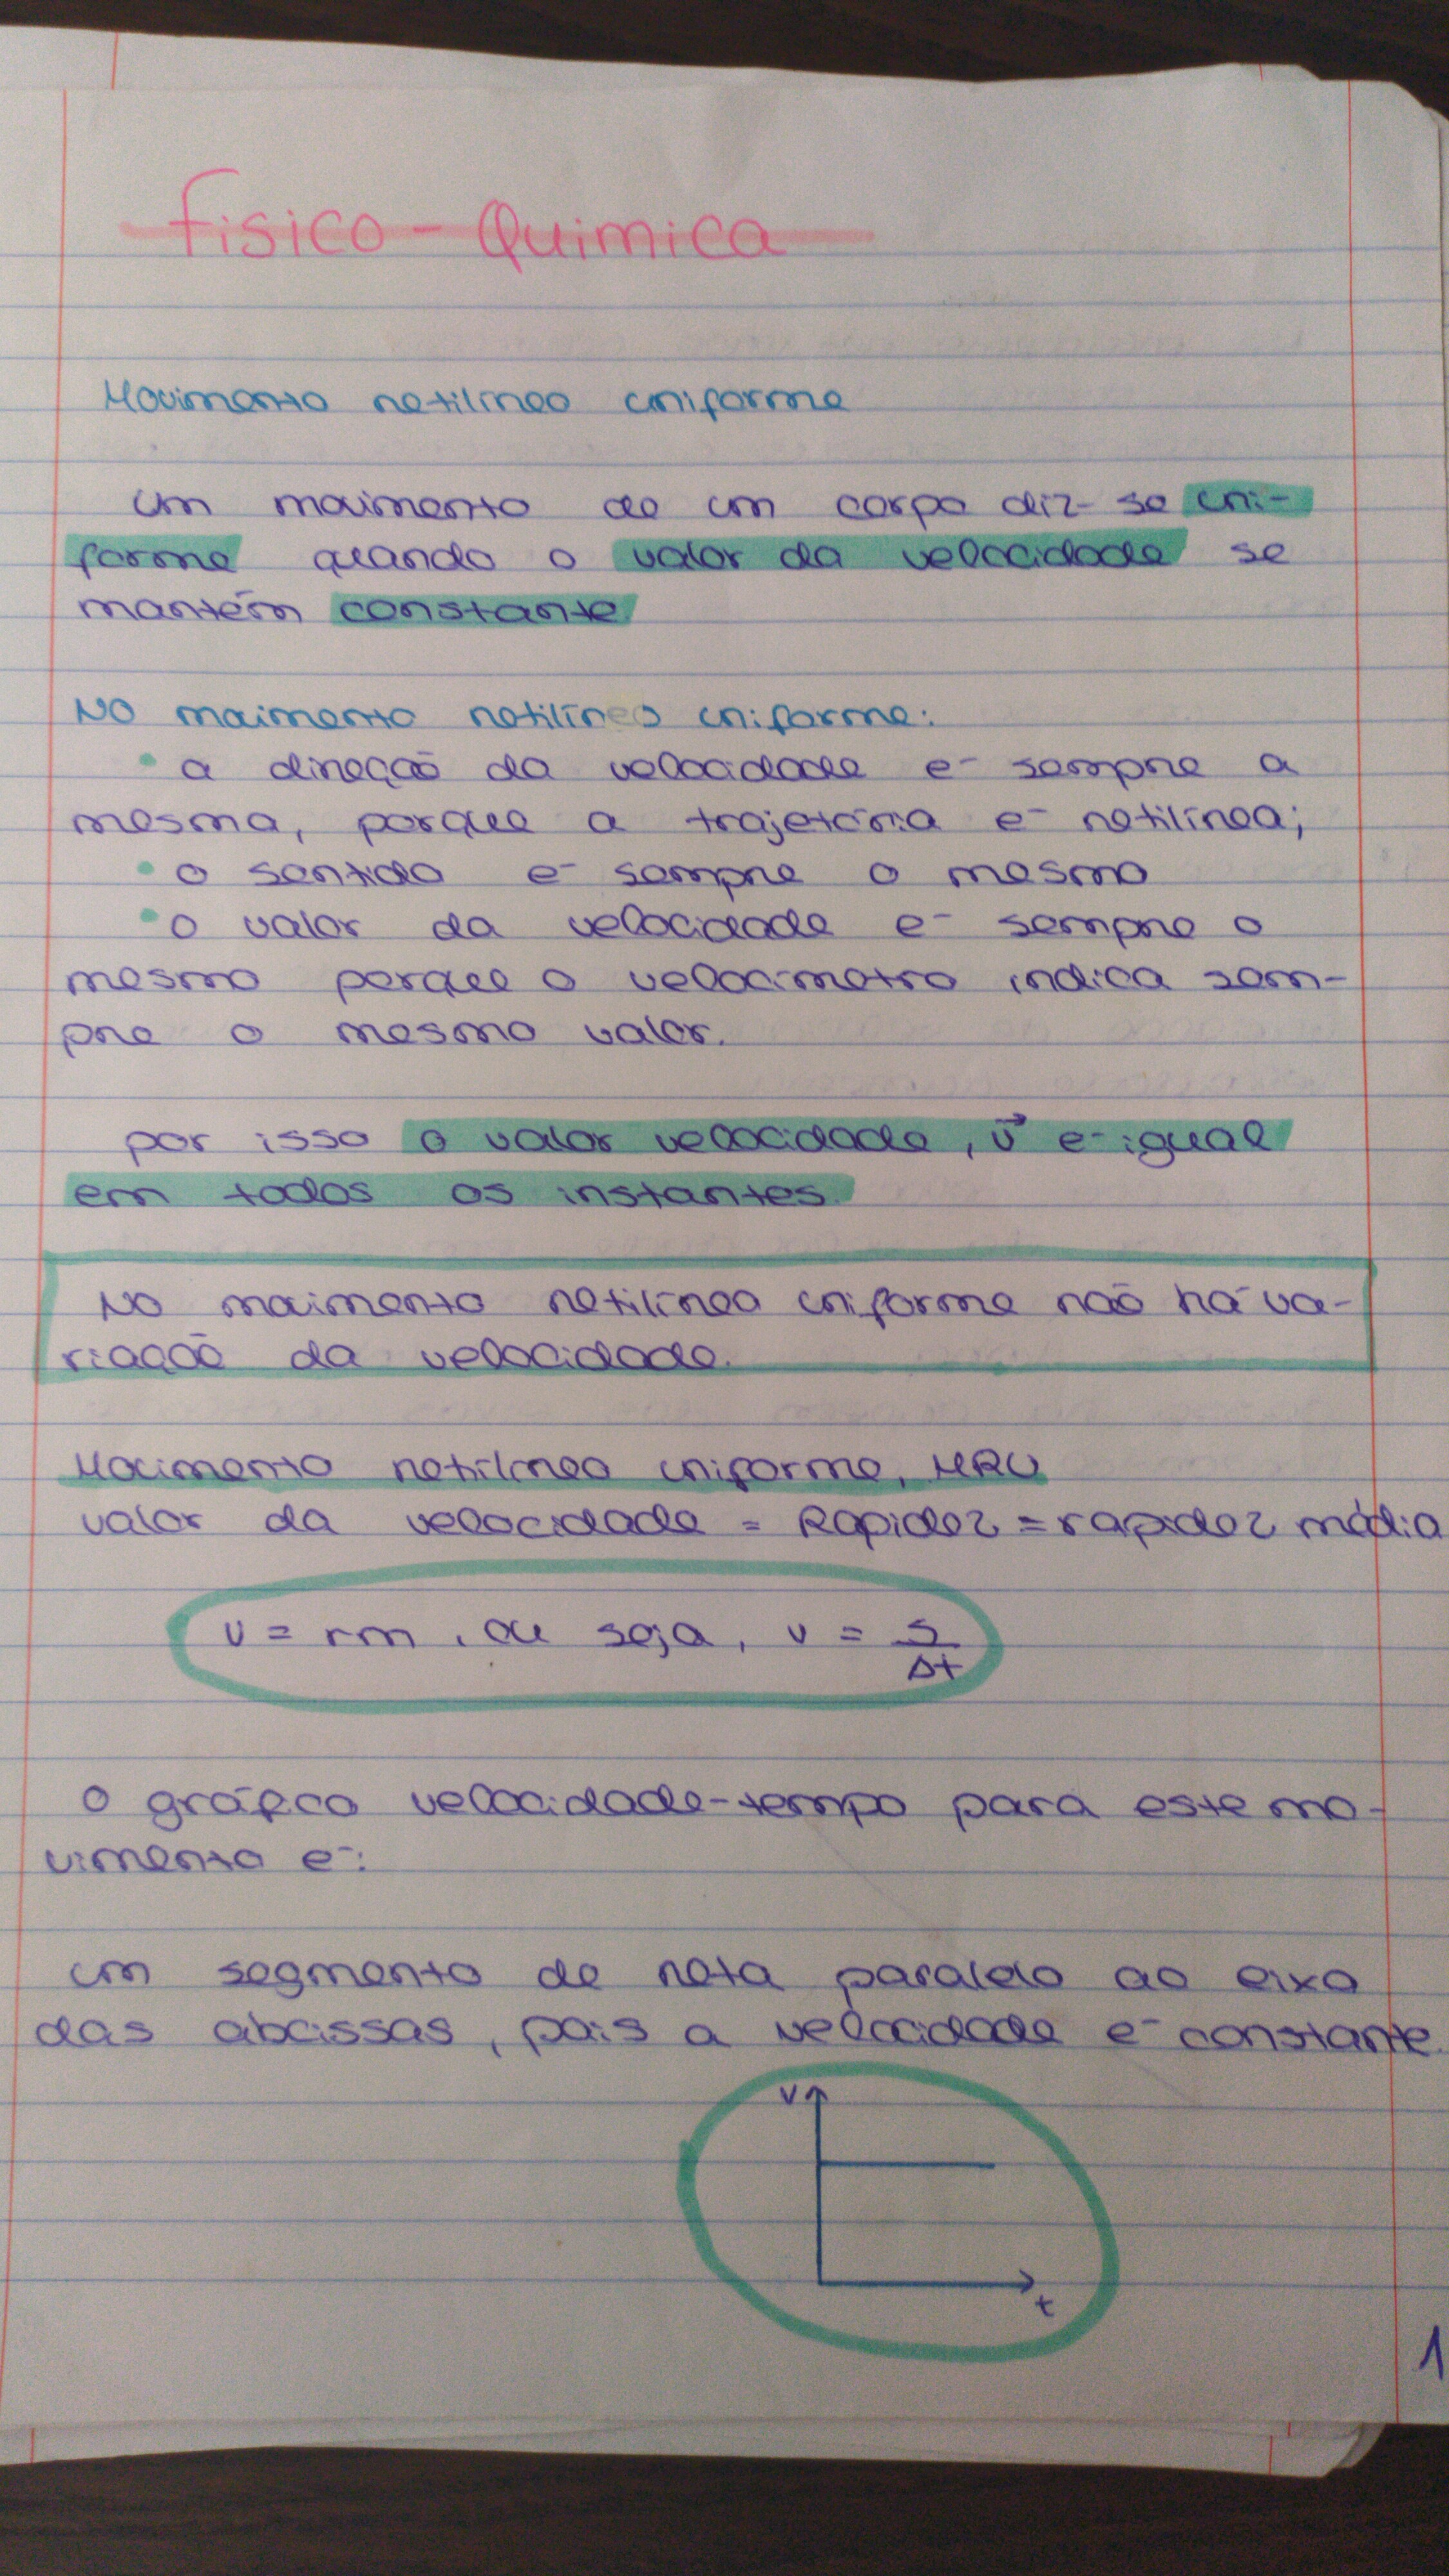 Fisico - Quimica
Movimento retilíneo uniforme
Um movimento de um corpo diz-se uni-
forme quando o valor da velocidade se
mantém constante
No movimento retilíneo uniforme:
• a direção da velocidade é sempre a
mesma, porque a trajetória é retilínea;
• o sentido é sempre o mesmo
• o valor da velocidade é sempre o
mesmo porque o velocimetro indica sem-
pre o mesmo valor.
por isso o valor velocidade, v⃗ é igual
em todos os instantes.
No movimento retilíneo uniforme não há va-
riação da velocidade.
Movimento retilíneo uniforme, MRU
valor da velocidade = Rapidez = rapidez média
v = rm, ou seja, v = s/Δt
O gráfico velocidade-tempo para este mo-
vimento é:
um segmento de reta paralelo ao eixo
das abcissas, pois a velocidade é constante.
v
t
1